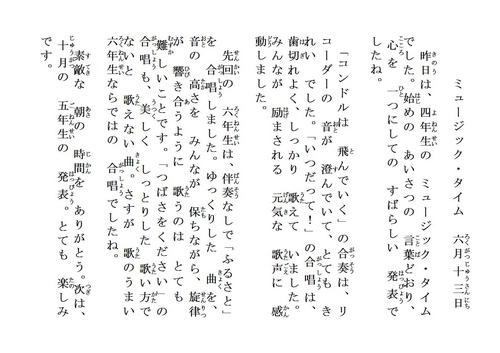 ミュージック・タイム　六月十三日
昨日は、四年生の　ミュージック・タイム
でした。始めの　あいさつの　言葉どおり、
心を　一つにしての　すばらしい　発表で
したね。
「コンドルは　飛んでいく」の合奏は、リ
コーダーの　音が　澄んでいて、とても　き
れい　でした。「いつだって！」の合唱は、
歯切れよく、しっかり　歌えて　いました。
みんなが　励まされる　元気な　歌声に　感
動しました。
先回の　六年生は、伴奏なしで「ふるさと」
を　合唱しました。ゆっくりした　曲を、
音の　高さを　みんなが　保ちながら、旋律
が　響き合うように　歌うのは　とても
難しいことです。「つばさをください」の
合唱も、美しく　しっとりした　歌い方で
ないと　歌えない　曲。さすが　歌のうまい
六年生ならではの　合唱でしたね。
素敵な　朝の　時間を　ありがとう。次は、
十月の　五年生の　発表。とても　楽しみ
です。